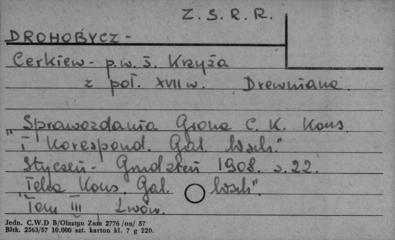 Z. S. R. R.
DROHOBYCZ -
Cerkiew - p.w. ś. Krzyża
z poł. XVII w. Drewniana.
"Sprawozdania Grona C. K. Kons.
i Korespond. Gal. Wsch."
Styczeń - Grudzień 1908. s. 22.
"Teka Kons. Gal. Wsch".
Tom III Lwów.
Jedn. C.W.D B/Olsztyn Zam 2776/on/ 57
Błtk. 2563/57 10.000 szt. karton kl. 7 g 220.